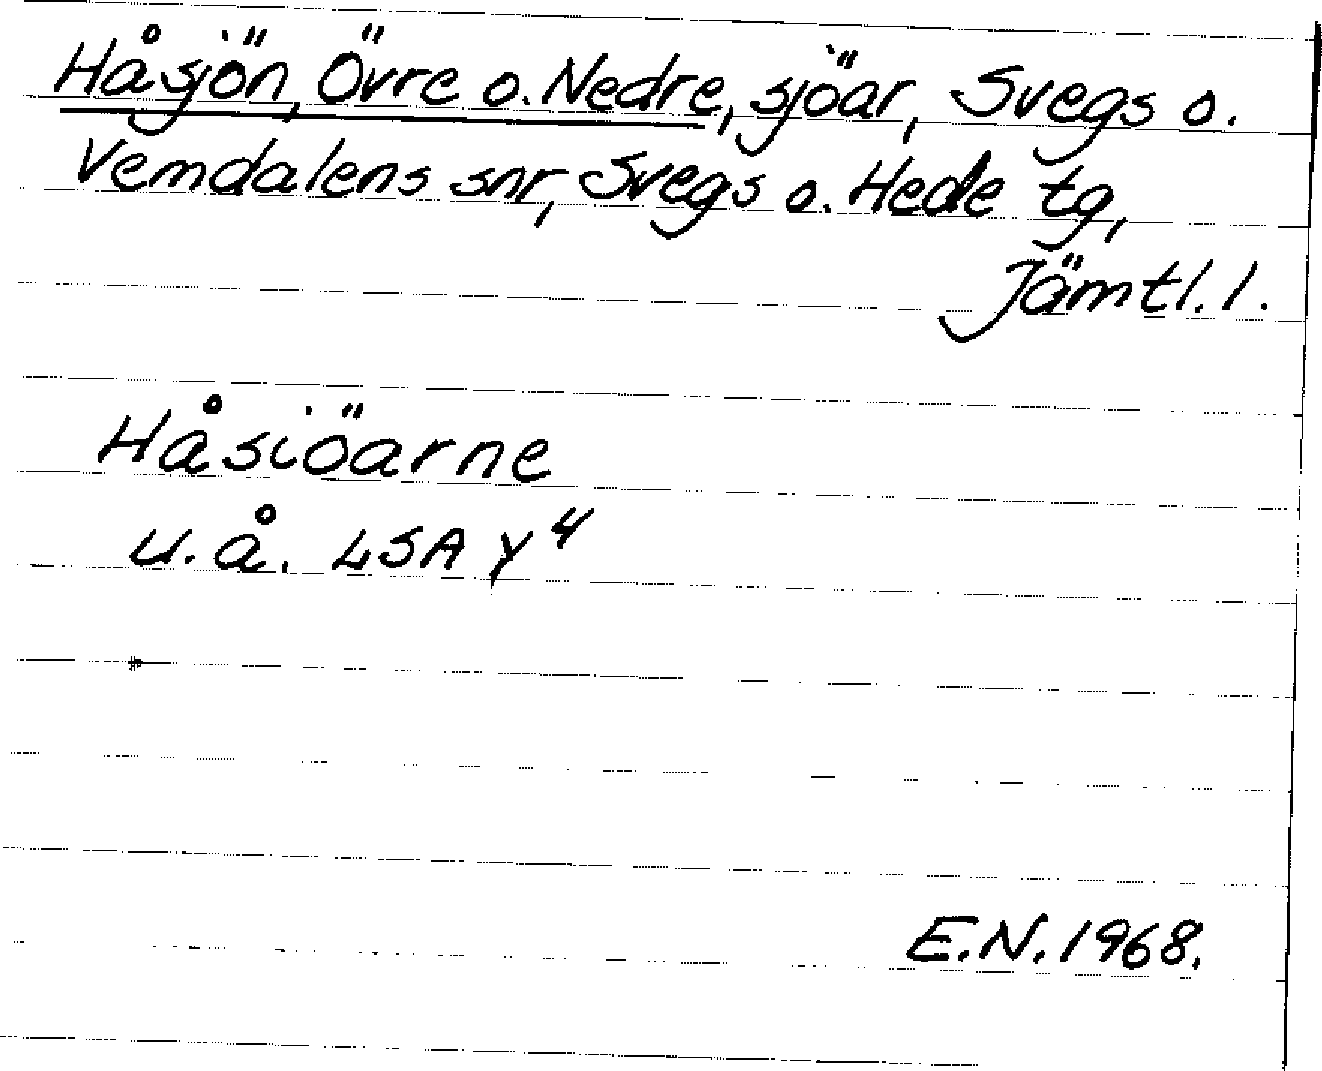 Håsjön, Övre o. Nedre, sjöar, Svegs o.
Vemdalens snr, Svegs o. Hede tg,
Jämtl. l.
Håsiöarne
u.å. LSA Y⁴
E.N. 1968.